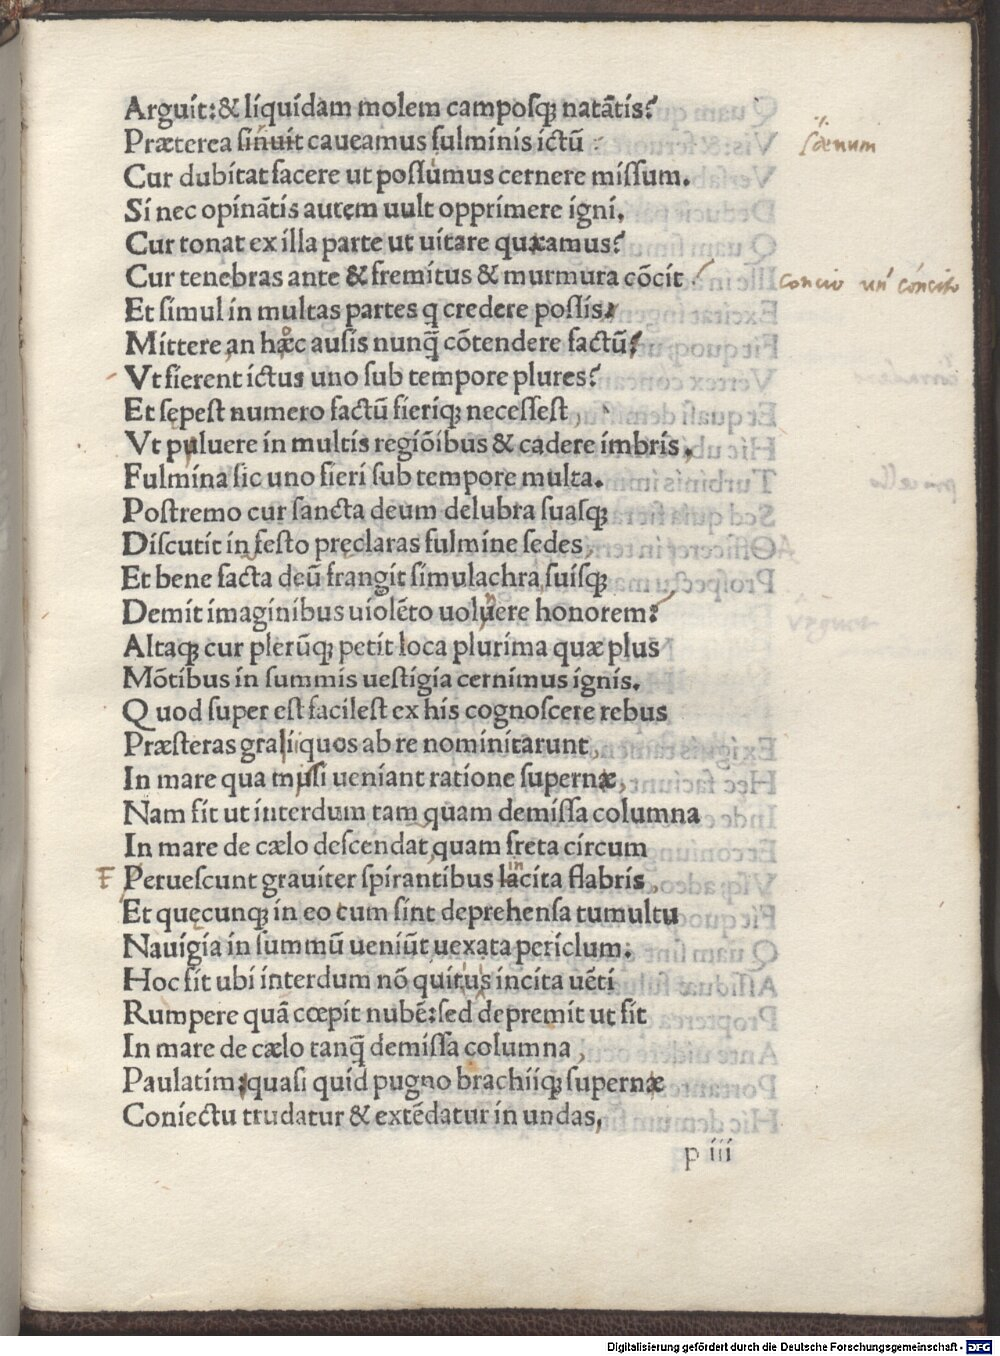 Arguit:& liquidam molem camposq; natātis?
Præterea sinuit caueamus fulminis ictū
Cur dubitat facere ut possumus cernere missum.
Si nec opinātis autem uult opprimere igni,
Cur tonat ex illa parte ut uitare quæamus?
Cur tenebras ante & fremitus & murmura cōcit
Et simul in multas partes q credere possis
Mittere an hæc ausis nunq̄ cōtendere factū?
Vt fierent ictus uno sub tempore plures?
Et sępest numero factū fieriq; necessest,
Vt puluere in multis regiōibus & cadere imbris,
Fulmina sic uno fieri sub tempore multa.
Postremo cur sancta deum delubra suasq;
Discutit in festo pręclaras fulmine sedes,
Et bene facta deū frangit simulachra suisq;
Demit imaginibus uiolēto uoluere honorem?
Altaq; cur plerūq; petit loca plurima quæ plus
Mōtibus in summis uestigia cernimus ignis.
Quod super est facilest ex his cognoscere rebus
Præsteras graliiquos ab re nominitarunt,
In mare qua mussi ueniant ratione supernæ,
Nam fit ut interdum tam quam demissa columna
In mare de cælo descendat quam freta circum
F Peruescunt grauiter spirantibus lacita flabris,
Et quęcunq; in eo cum sint deprehensa tumultu
Nauigia in summū ueniūt uexata periclum.
Hoc fit ubi interdum nō quitus incita uēti
Rumpere quā cœpit nubē:sed depremit ut fit
In mare de cælo tanq̄ demissa columna,
Paulatim:quasi quid pugno brachiiq; supernæ
Coniectu trudatur & extēdatur in undas,
p iii
concio
Digitalisierung gefördert durch die Deutsche Forschungsgemeinschaft - DFG